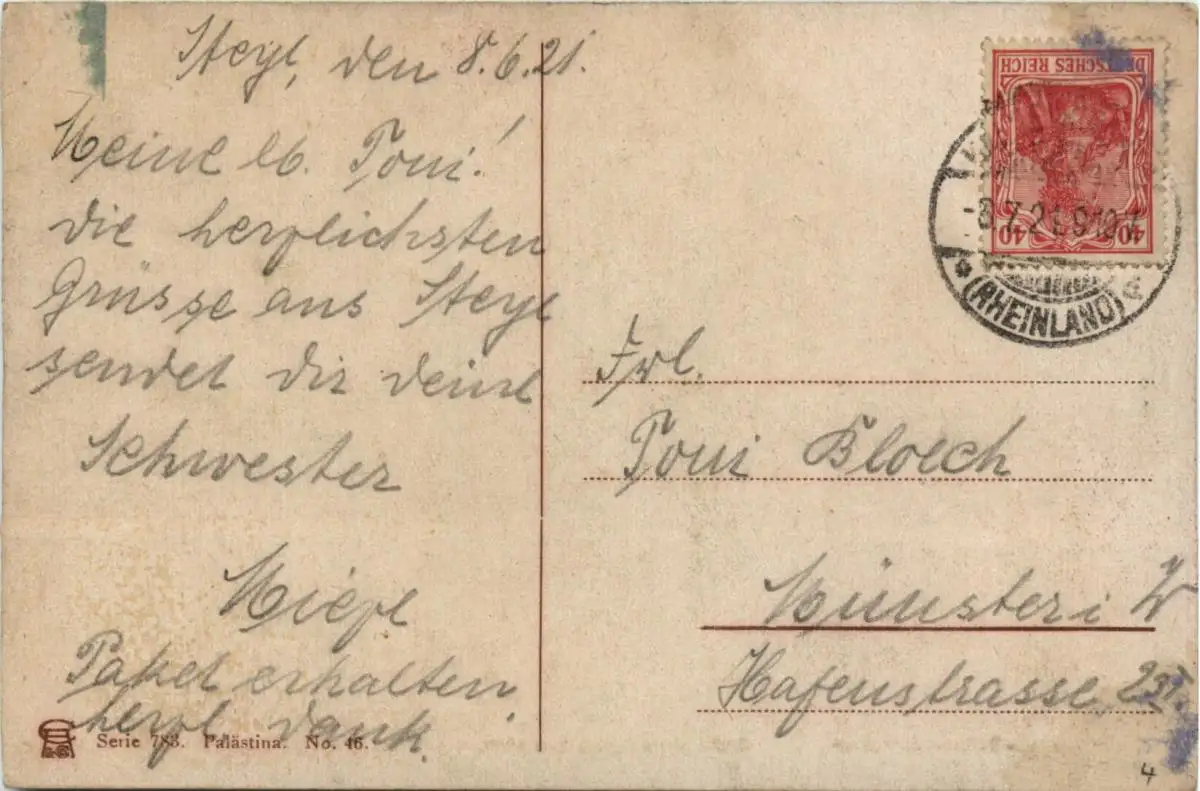 Steyl, den 8.6.21.
Meine lb. Toni!
die herzlichsten
Grüsse aus Steyl
sendet dir deine
Schwester
Miezl
Paket erhalten,
herzl. Dank.
Serie 783. Palästina. No. 46.
DEUTSCHES REICH
40 40
7.21.9-10V.
(RHEINLAND)
Frl.
Toni Bloech
Münster i W
Hafenstrasse
4